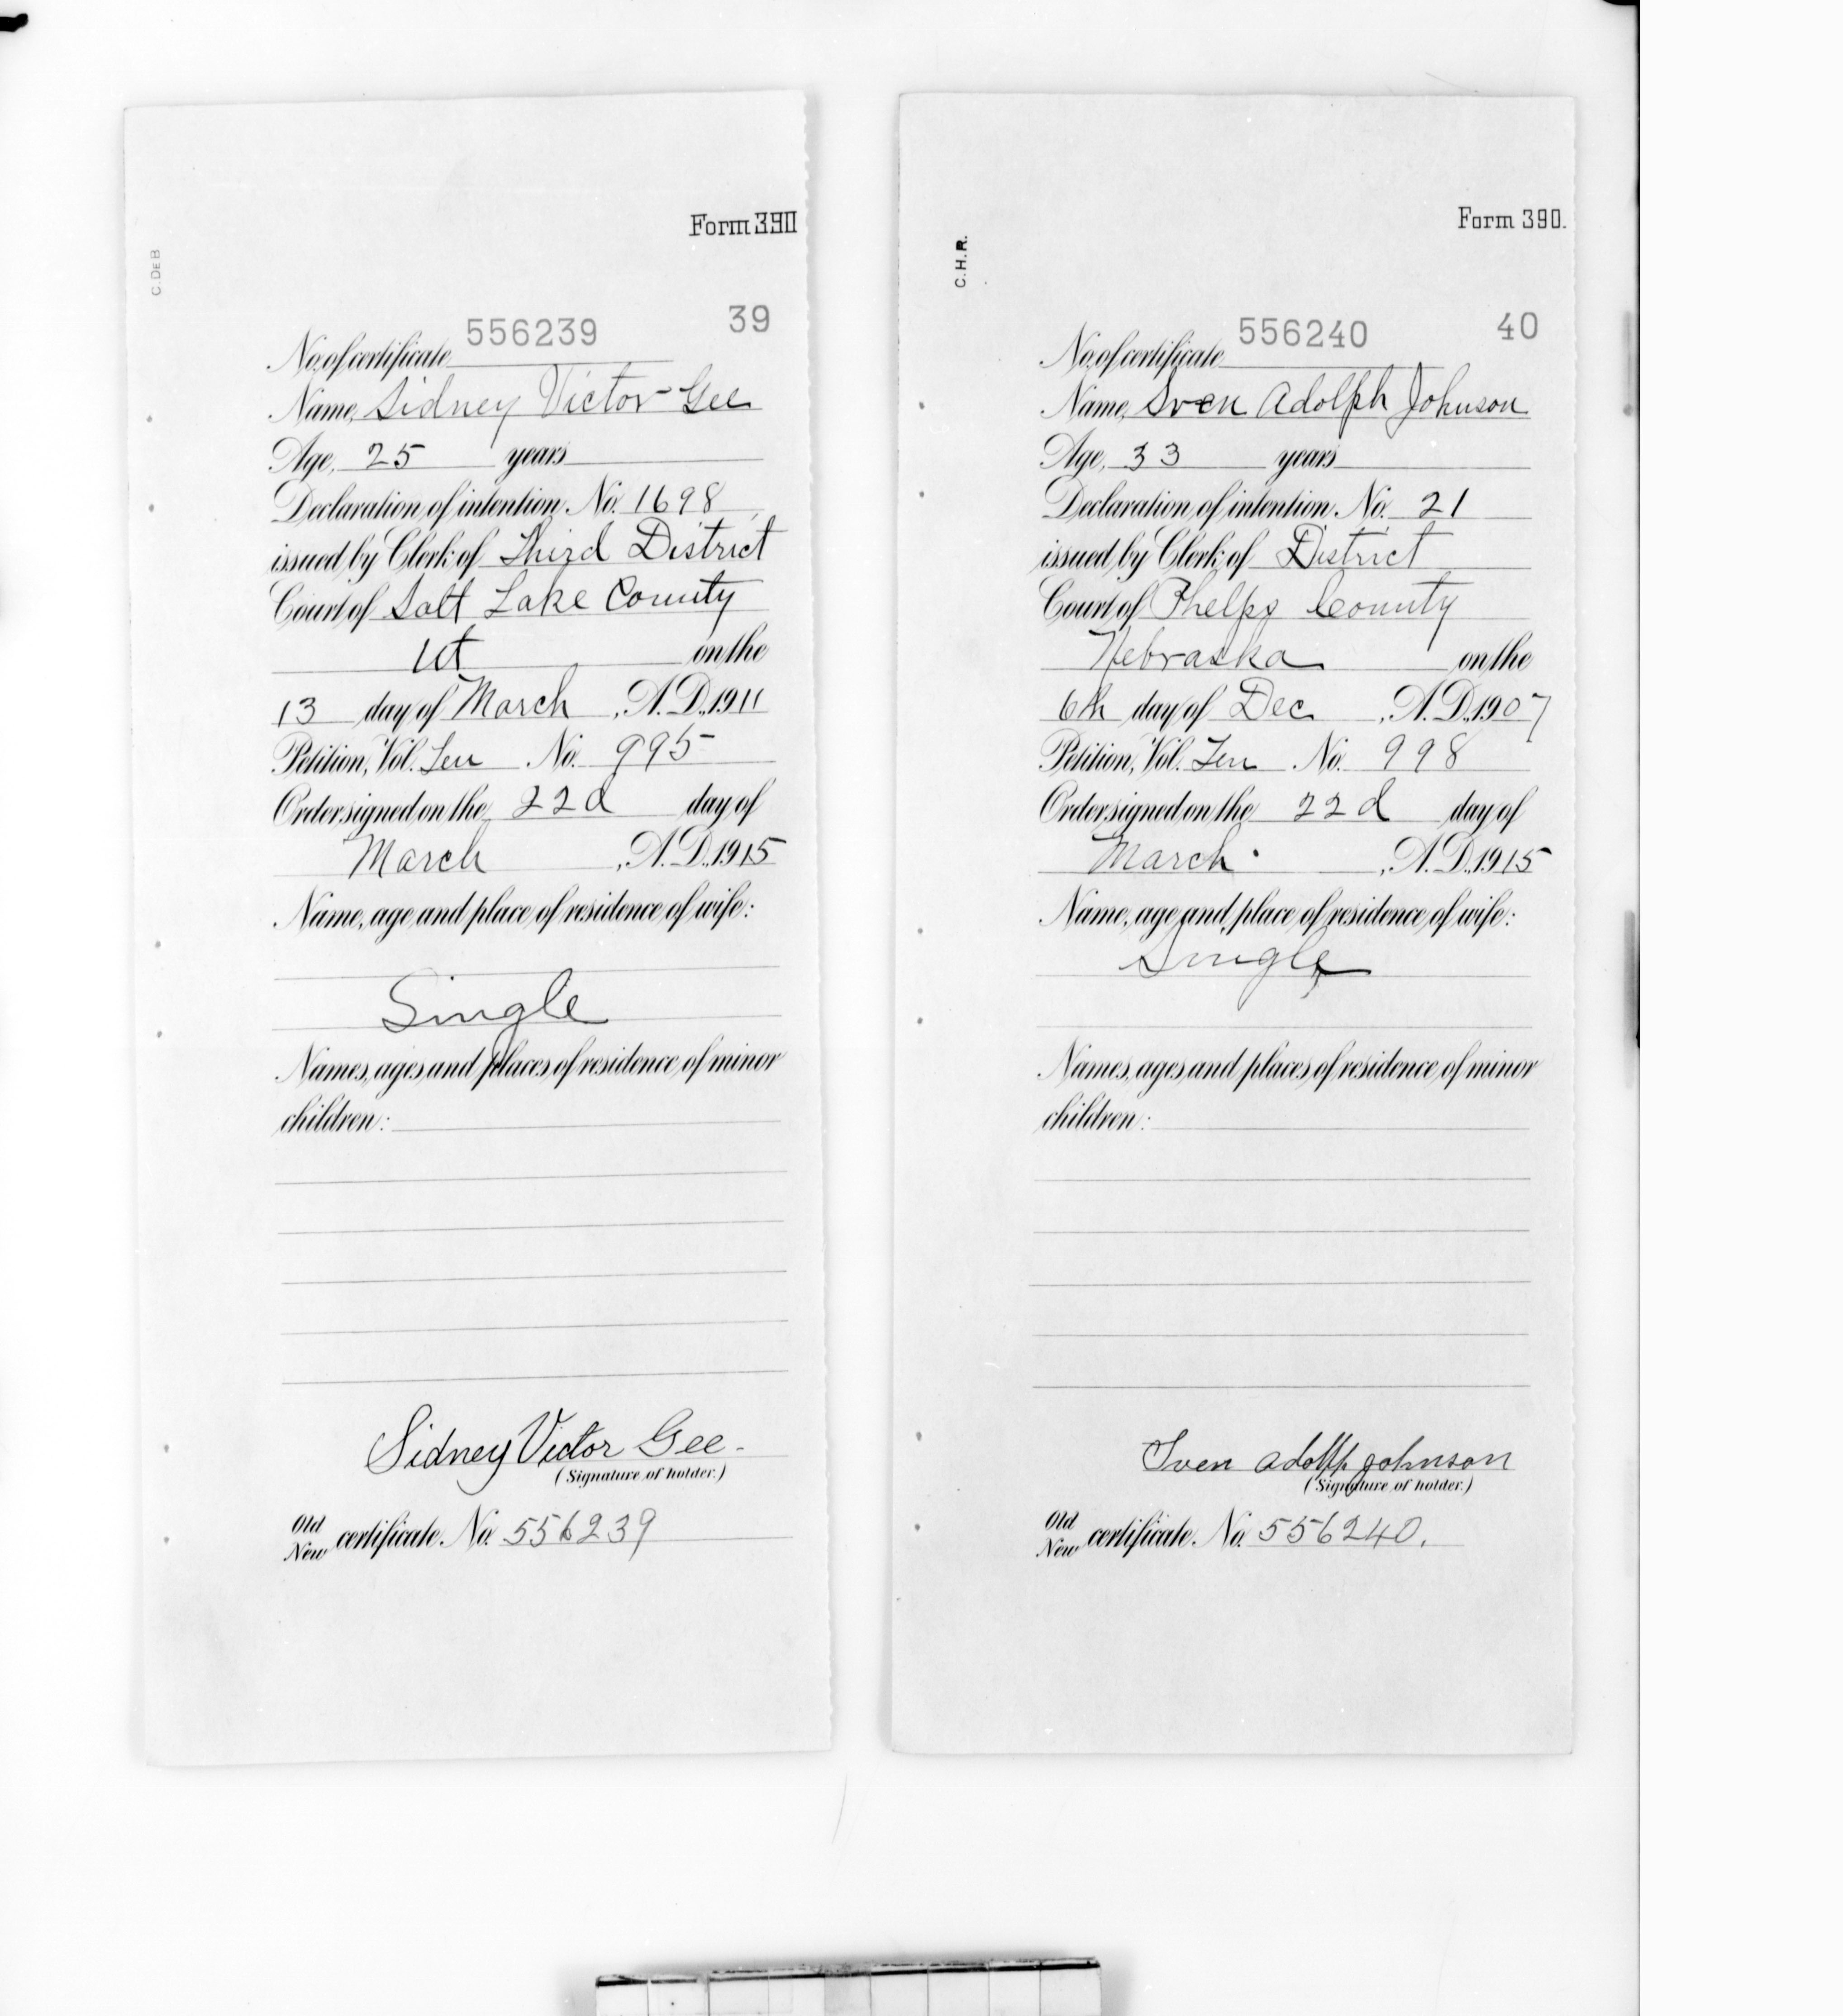 Form 390
C.DEB
39
No. of certificate 556239
Name, Sidney Victor Gee
Age, 25 years
Declaration of intention, No. 1698
issued by Clerk of Third District
Court of Salt Lake County
Ut on the
13 day of March, A.D., 1911
Petition, Vol. Ten No. 995
Order signed on the 22d day of
March, A.D., 1915
Name, age and place of residence of wife:
Single
Names, ages and places of residence of minor
children:
Sidney Victor Gee
(Signature of holder.)
Old
New certificate. No. 556239
Form 390.
C.H.R.
40
No. of certificate 556240
Name, Sven Adolph Johnson
Age, 33 years
Declaration of intention, No. 21
issued by Clerk of District
Court of Phelps County
Nebraska on the
6th day of Dec, A.D., 1907
Petition, Vol. Ten No. 998
Order signed on the 22d day of
March, A.D., 1915
Name, age and place of residence of wife:
Single
Names, ages and places of residence of minor
children:
Sven Adolfp Johnson
(Signature of holder.)
Old
New certificate. No. 556240.